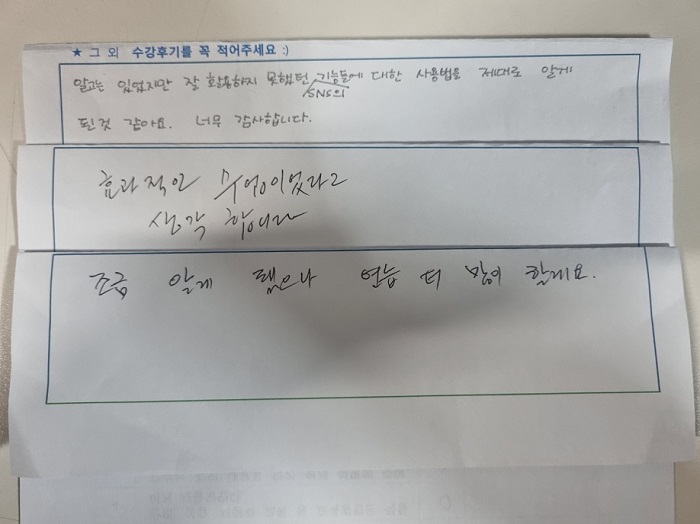 ★ 그 외 수강후기를 꼭 적어주세요 :)
알고는 있었지만 잘 활용하지 못했던 기능들에 대한 사용법을 제대로 알게
SNS의
된것 같아요. 너무 감사합니다.
효과적인 수업이었다고
생각 합니다
조금 알게 됐으나 연습 더 많이 할게요.